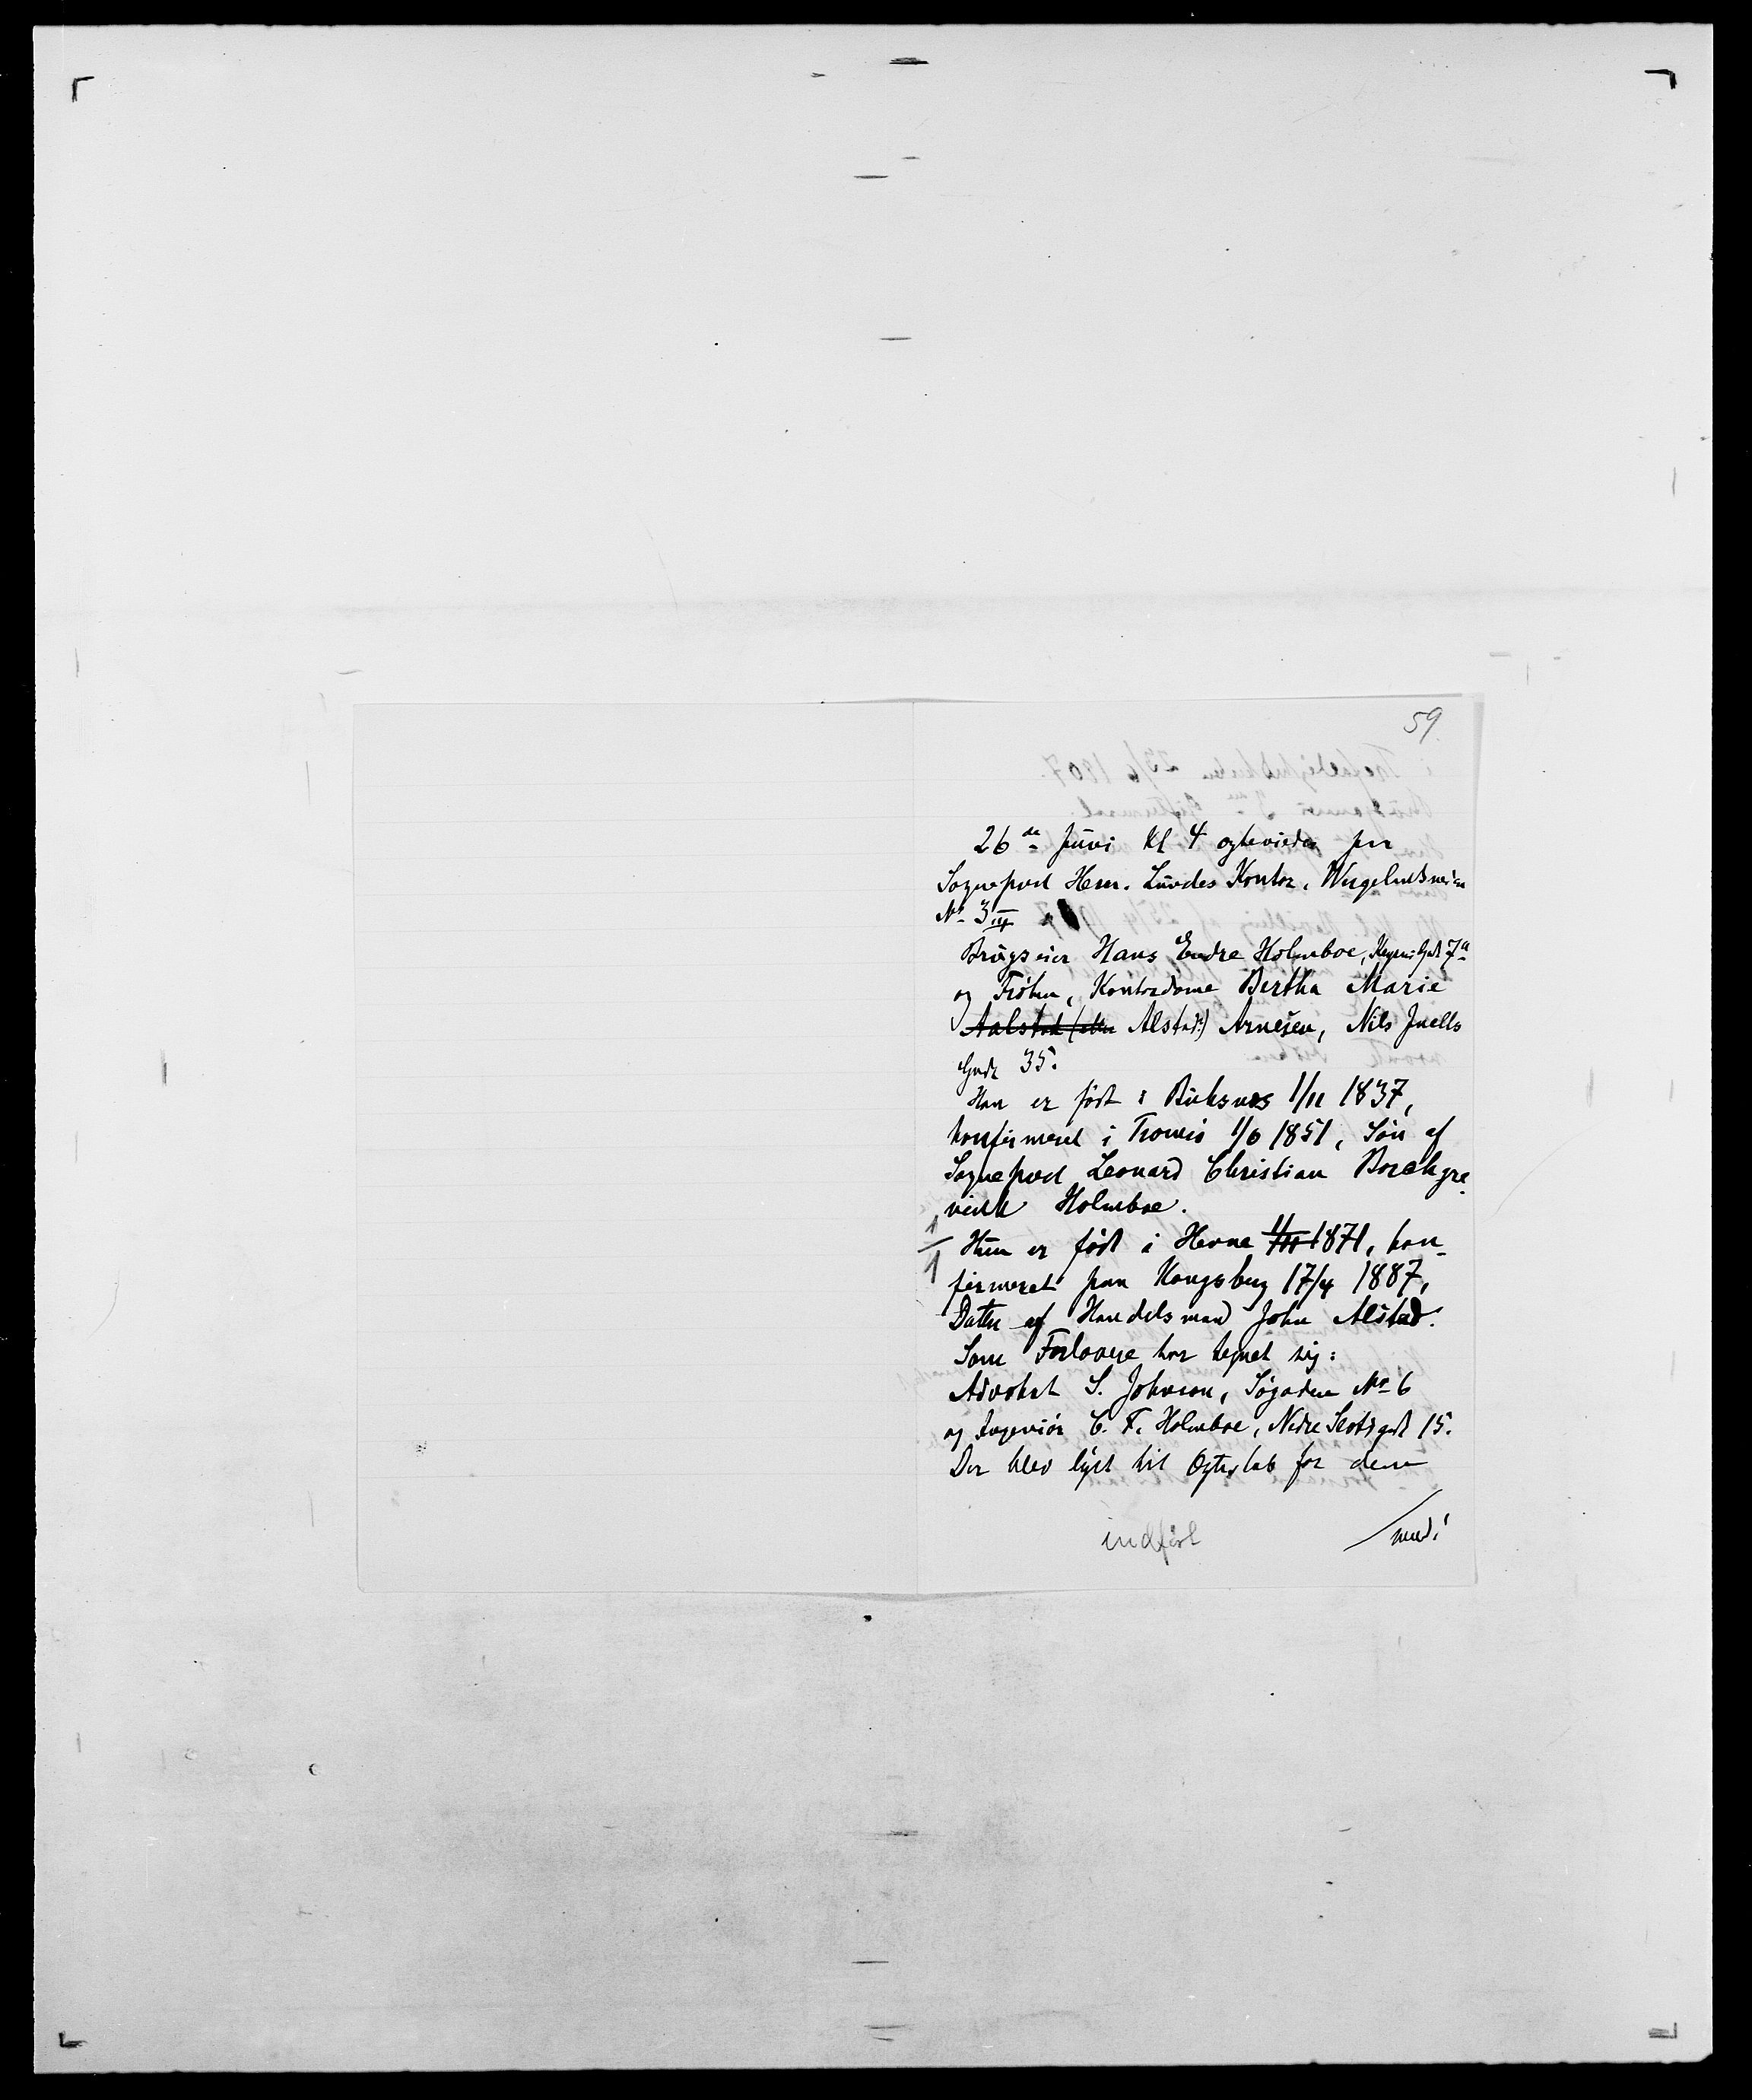 59
26de Juni Kl 4 ægtevies paa
Sognepræst Herm. Lundes Kontor, Wergelandsveien
No 3 III
Brugseier Hans Endre Holmboe, Keysers Gade 7a
og Frøken, Kontordame Bertha Marie
Aalstad (eller Alstad:) Arnesen, Nils Juells
Gade 35.
Han er født i Buksnes 1/11 1837,
konfirmeret i Tromsø 1/6 1851, Søn af
Sognepræst Leonard Christian Borchgre-
vink Holmboe.
1/1 Hun er født i Hevne 1/11 1871, kon-
firmeret paa Kongsberg 17/4 1887,
Datter af Handelsmand John Alstad.
Som Forlovere har tegnet sig:
Advokat S. Johnson, Søgaden No 6
og Ingeniør C. F. Holmboe, Nedre Slotsgade 15.
Der blev lyst til Ægteskab for dem
indført
/vend!